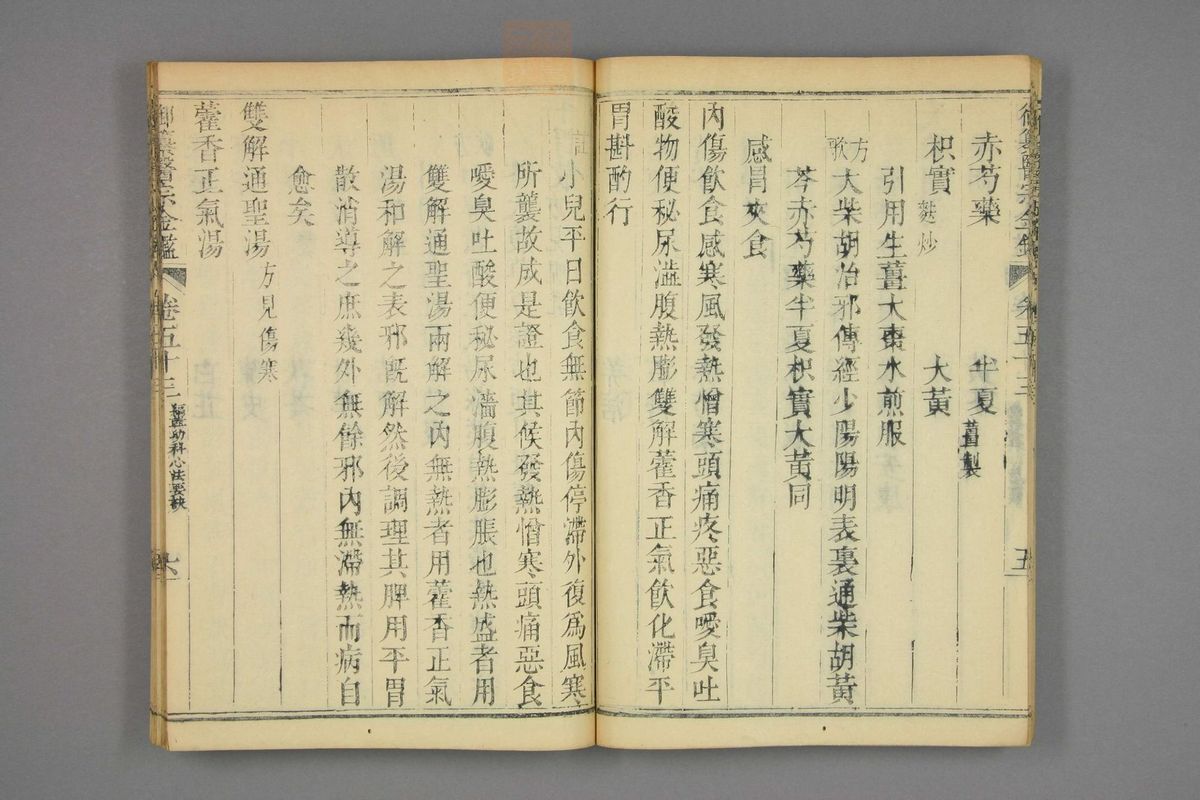 赤芍藥　半夏薑製
枳實麩炒　大黃
引用生薑大棗水煎服
方歌　大柴胡治邪傳經少陽陽明表裏通柴胡黃
芩赤芍藥半夏枳實大黃同
感冒夾食
內傷飲食感寒風發熱憎寒頭痛疼惡食噯臭吐
酸物便秘尿澁腹熱膨雙解藿香正氣飲化滯平
胃斟酌行
註　小兒平日飲食無節內傷停滯外復為風寒
所襲故成是證也其候發熱憎寒頭痛惡食
噯臭吐酸便秘尿濇腹熱膨脹也熱盛者用
雙解通聖湯兩解之內無熱者用藿香正氣
湯和解之表邪旣解然後調理其脾用平胃
散消導之庶幾外無餘邪內無滯熱而病自
愈矣
雙解通聖湯方見傷寒
藿香正氣湯
御纂醫宗金鑑　卷五十三　編輯幼科心法要訣　六
五